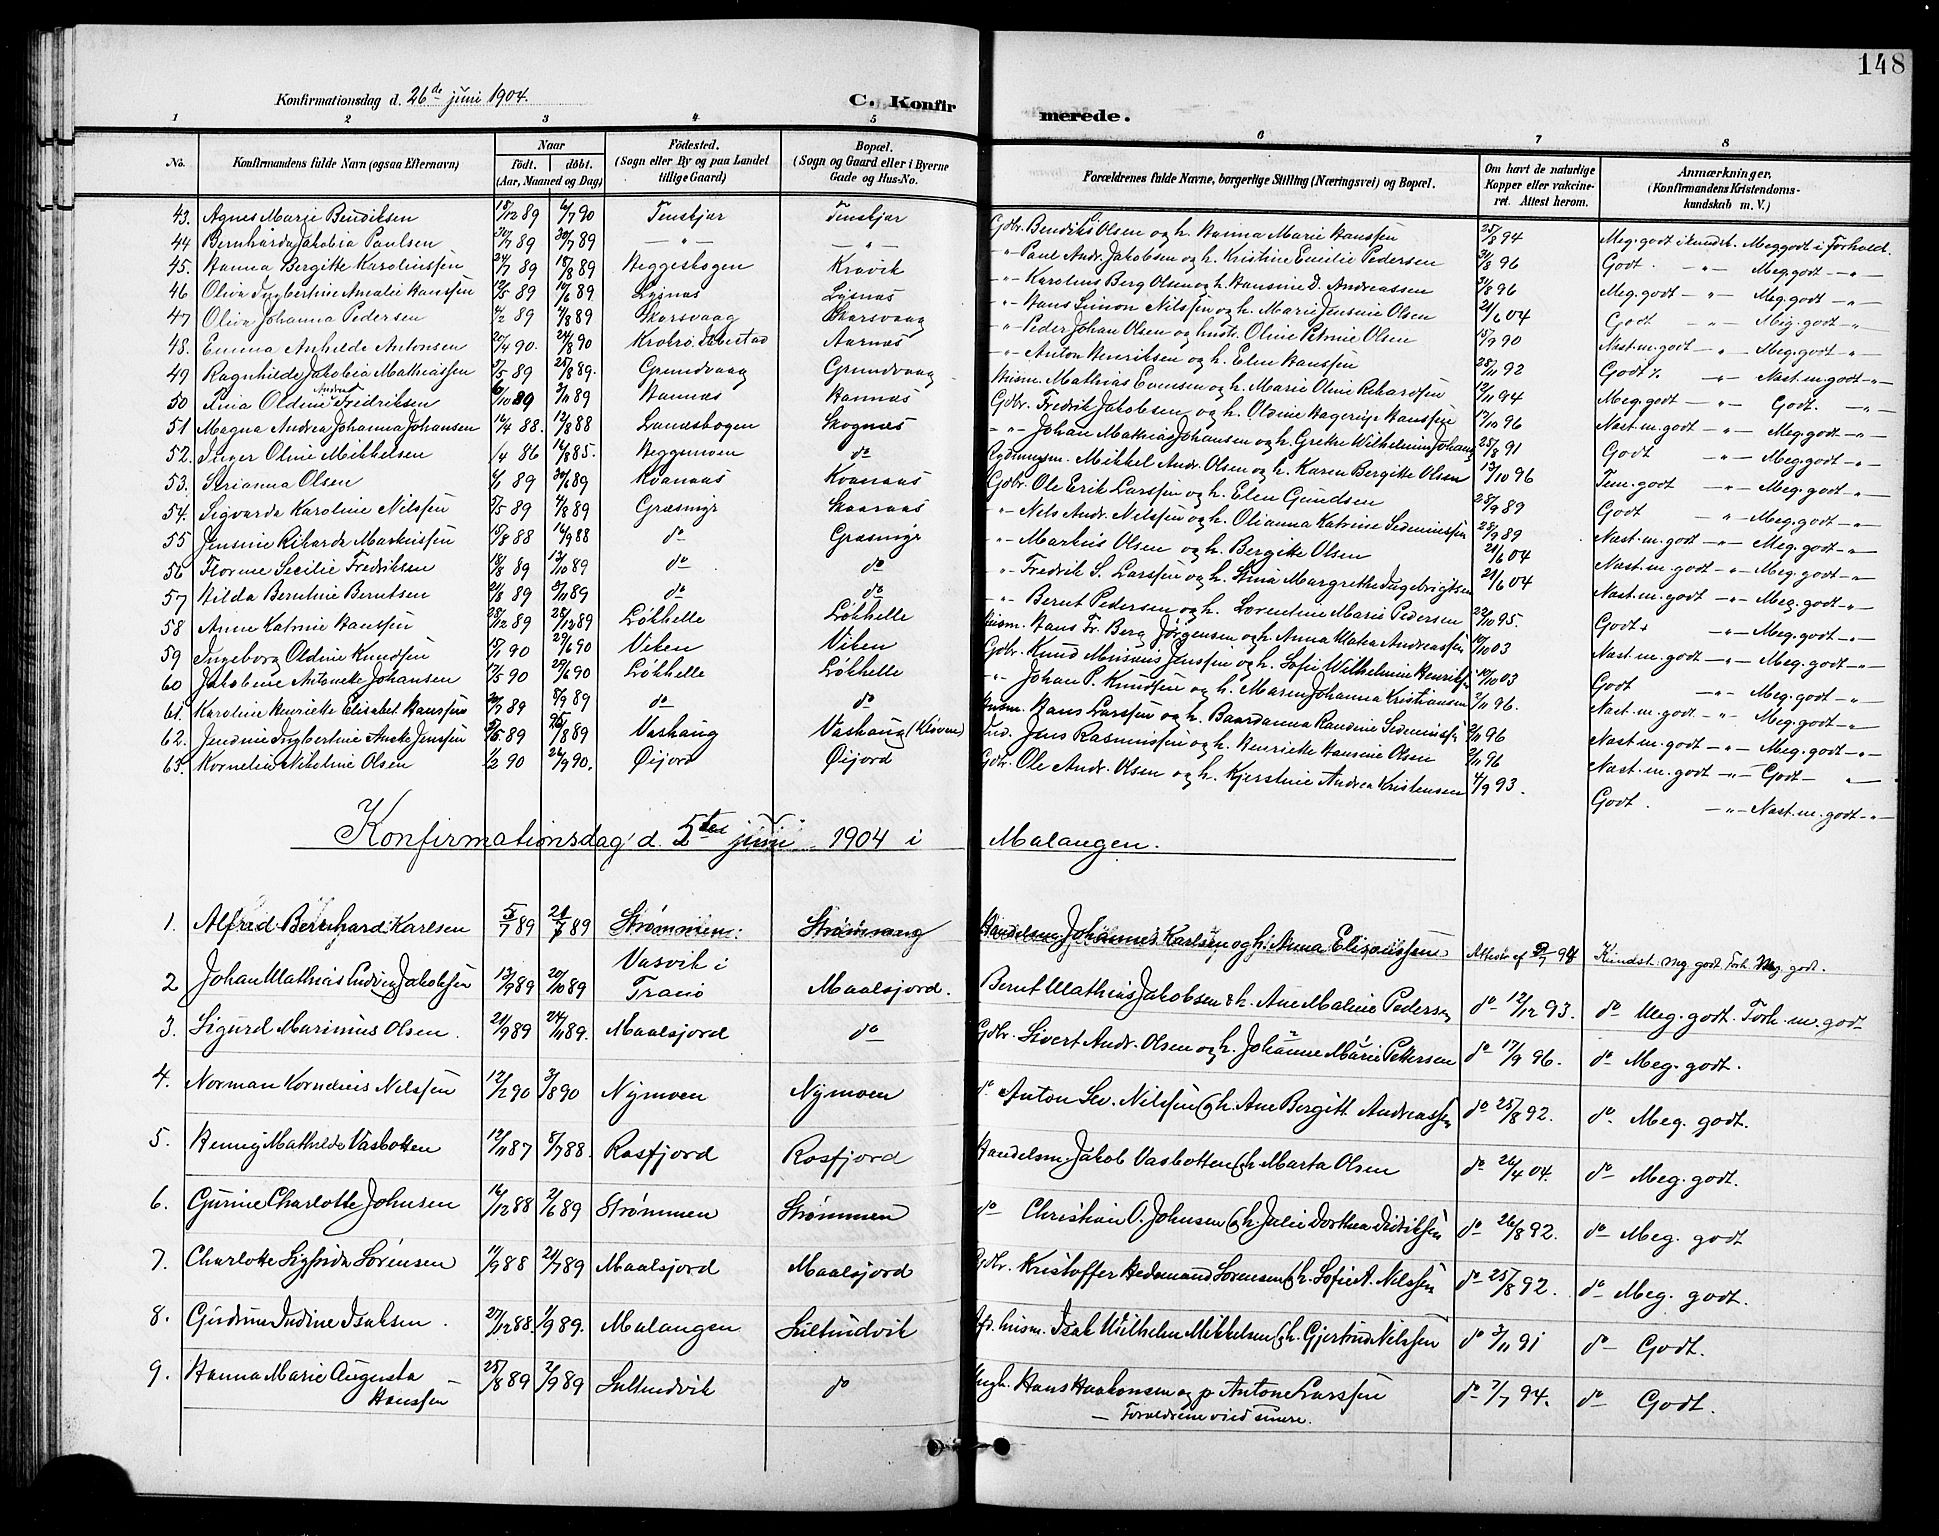 148
Konfirmationsdag d. 26de juni 1904.
C. Konfirmerede.
1 2 3 4 5 6 7 8
No.
Konfirmandens fulde Navn (ogsaa Efternavn)
Naar
födt. döbt.
(Aar, Maaned og Dag)
Födested.
(Sogn eller By og paa Landet
tillige Gaard)
Bopæl.
(Sogn og Gaard eller i Byerne
Gade og Hus-No.
Forældrenes fulde Navne, borgerlige Stilling (Næringsvei) og Bopæl.
Om havt de naturlige
Kopper eller vakcine-
ret. Attest herom.
Anmærkninger.
(Konfirmandens Kristendoms-
kundskab m. V.)
43. Agnes Marie Bendiksen 15/12 89 6/7 90 Tennskjær Tennskjær Gdbr. Bendiks Olsen og h. Hanna Marie Hanssen 25/8 94 Meg. godt i kundsk. Meg godt i Forhold.
44 Bernharda Jakobia Paulsen 30/7 89 —"— —"— -"- Paul Andr. Jakobsen og h. Kristine Emilie Pedersen 31/8 96 Godt. —"— Meg. godt —"—
45. Hanna Bergitte Karolinssen 24/7 89 18/8 89 Heggeskogen Kravik -"- Karolius Berg Olsen og h. Hansine D. Andreassen 31/8 96 Meg. godt —"— Meg. godt —"—
46 Oliva Ingbertine Amalie Hanssen 12/5 89 10/6 89 Lysnæs Lysnæs -"- Hans Simon Nilssen og h. Marie Jensine Olsen 21/6 04 Godt —"— Meg. godt —"—
47 Oliva Johanna Pedersen 4/2 89 4/8 89 Skarsvaag Skarsvaag -"- Peder Johan Olsen og hustr. Oline Petrine Olsen 15/9 90 Næst. m. godt —"— Meg. godt —"—
48. Emma Anhilde Antonsen 20/4 90. 24/8 90 Aarnæs -"- Anton Henriksen og h. Elen Hanssen 28/11 92 Godt —"— Næst. m. godt —"—
49 Ragnhilde Jakobia Mathiassen 5/5 89 25/8 89. Grundvaag Grundvaag Husm. Mathias Evensen og h. Marie Oline Rikardsen 12/11 94 Meg. godt —"— Godt. —"—
50 Lina Oldine Andrea Fredriksen 6/10 89 3/11 89 Hannæs Hannæs Gdbr. Fredrik Jakobsen og h. Oldine Hagerup Hanssen 12/10 96 Næst. m. godt —"— Meg. godt —"—
51 Magna Andrea Johanna Johansen 16/4 88. 12/8 88 Lanesskogen Skognæs -"- Johan Mathias Johansen og h. Grethe Wilhelmine Johans. 25/8 91 Godt —"— Meg. godt —"—
52. Inger Oline Mikkelsen 1/4 86 16/8 85. Heggemoen do Mikkel Andr. Olsen og h. Karen Bergitte Olsen 13/10 96 Tem. godt —"— Meg. godt —"—
53. Serianna Olsen 4/1 89 30/6 89 Kvanaas Kvanaas Gdbr. Ole Erik Larssen og h. Elen Gundsen 28/9 89 Godt —"— Meg. godt —"—
54. Sigvarda Karoline Nilssen 5/5 89 4/8 89 Græsmyr Skaaraas -"- Nels Andr. Nilssen og h. Olianna Katrine Sedeniussen 28/9 89 Næst. m. godt —"— Meg. godt —"—
55 Jensine Rikarda Markussen 15/8 88 16/9 88 do Græsmyr -"- Markus Olsen og h. Bergitte Olsen 21/6 04 Næst. m. godt —"— Meg. godt —"—
56 Florine Secilie Fredriksen 18/8 89 13/10 89 do do -"- Fredrik S. Larssen og h. Stina Margrethe Ingebrigtsen 21/6 04 Næst. m. godt —"— Meg. godt —"—
57 Hilda Berntine Berntsen 21/8 89 3/11 89 do do -"- Bernt Pedersen og h. Lorentine Marie Pedersen 22/10 95. Godt —"— Meg. godt —"—
58 Anne Katrine Hanssen 28/12 89 28/12 89 Løkhelle Løkhelle Husm. Hans Fr. Berg Jørgensen og h. Anna Maria Andreassen 10/10 03 Næst. m. godt —"— Meg. godt —"—
59 Ingeborg Oldine Knudsen 15/1 90 29/6 90 Viken Viken Gdbr. Knud Mursius Jenssen og h. Sofie Wilhelmine Henriks. 10/10 03 Godt —"— Meg. godt —"—
60 Jakobine Antonette Johansen 17/5 90 29/6 90 Løkhelle Løkhelle -"- Johan P. Knudsen og h. Maren Johanna Kristiansen 2/11 96. Næst. m. godt —"— Meg. godt —"—
61. Karoline Henriette Elisabet Hanssen 20/7 89 8/9 89 do do Husm. Hans Larssen og h. Baardanna Randine Sedeniuss. 2/11 96 Næst. m. godt —"— Meg. godt —"—
62. Jendine Ingbertine Anske Jenssen 5/5 89 25/8 89 Vashaug Vashaug (Kløven) Ind. Jens Rasmussen og h. Henriette Hansine Olsen 2/11 96 Næst. m. godt —"— Godt —"—
63. Kornelia Nikoline Olsen 1/2 90 26/9 90. Øijord Øijord Gdbr. Ole Andr. Olsen og h. Kjerstine Andrea Kristensen 4/9 93. Godt. —"— Næst. m. godt —"—
Konfirmationsdag d. 5te juni 1904 i Malangen.
1. Alfred Bernhard Karlsen 5/7 89 21/7 89 Strømmen. Handelsm. Johannes Karlsen og h. Anna Eliseussen Attest af 94 Kundsk. meg godt Forh. Meg. godt.
2 Johan Mathias Ludvig Jakobsen 13/9 89 20/10 89 Vasvik i
Tranö Maalsjord. Bernt Mathias Jakobsen & h. Ane Maline Pedersen do 12/12 93. do Meg. godt. Forh. m. godt
3. Sigurd Marinius Olsen. 21/9 89 24/11 89. Maalsjord do Gdbr. Sivert Andr. Olsen og h. Johanne Marie Pettersen do 17/9 96. do Meg. godt.
4. Norman Kornelius Nilssen 12/2 90 3/8 90 Nymoen Nymoen do Anton Sev. Nilssen & h. Ane Bergitt Andreassen do 25/8 92. do. Meg. godt.
5. Henny Mathilde Vasbotten 12/11 87 8/7 88. Rossfjord Rossfjord Handelsm. Jakob Vasbotten & h. Marta Olsen do 26/4 04. do Meg. godt.
6. Gurine Charlotte Johnsen 16/12 88 2/6 89 Strømmen Strømmen do Christian O. Johnsen & h. Julie Dorthea Didriksen do 26/8 92. do Meg. godt
7. Charlotte Sigfrida Sørensen 11/9 88 21/7 89 Maalsjord Maalsjord Gdbr. Kristoffer Hedemand Sørensen & h. Sofie A. Nilssen do 25/8 92. do Meg. godt.
8. Gudrun Indine Isaksen. 27/12 88. 1/9 89. Malangen Sultindvik Afd. husm. Isak Wilhelm Mikkelsen & h. Gjertrud Nilssen do 3/11 91 do Godt.
9. Hanna Marie Augusta
Hanssen 25/8 89 2/9 89 Sultindvik do Ungk. Hans Haakonsen og p. Antone Larssen do 7/7 94. do Godt.
— Forældrene viede senere.